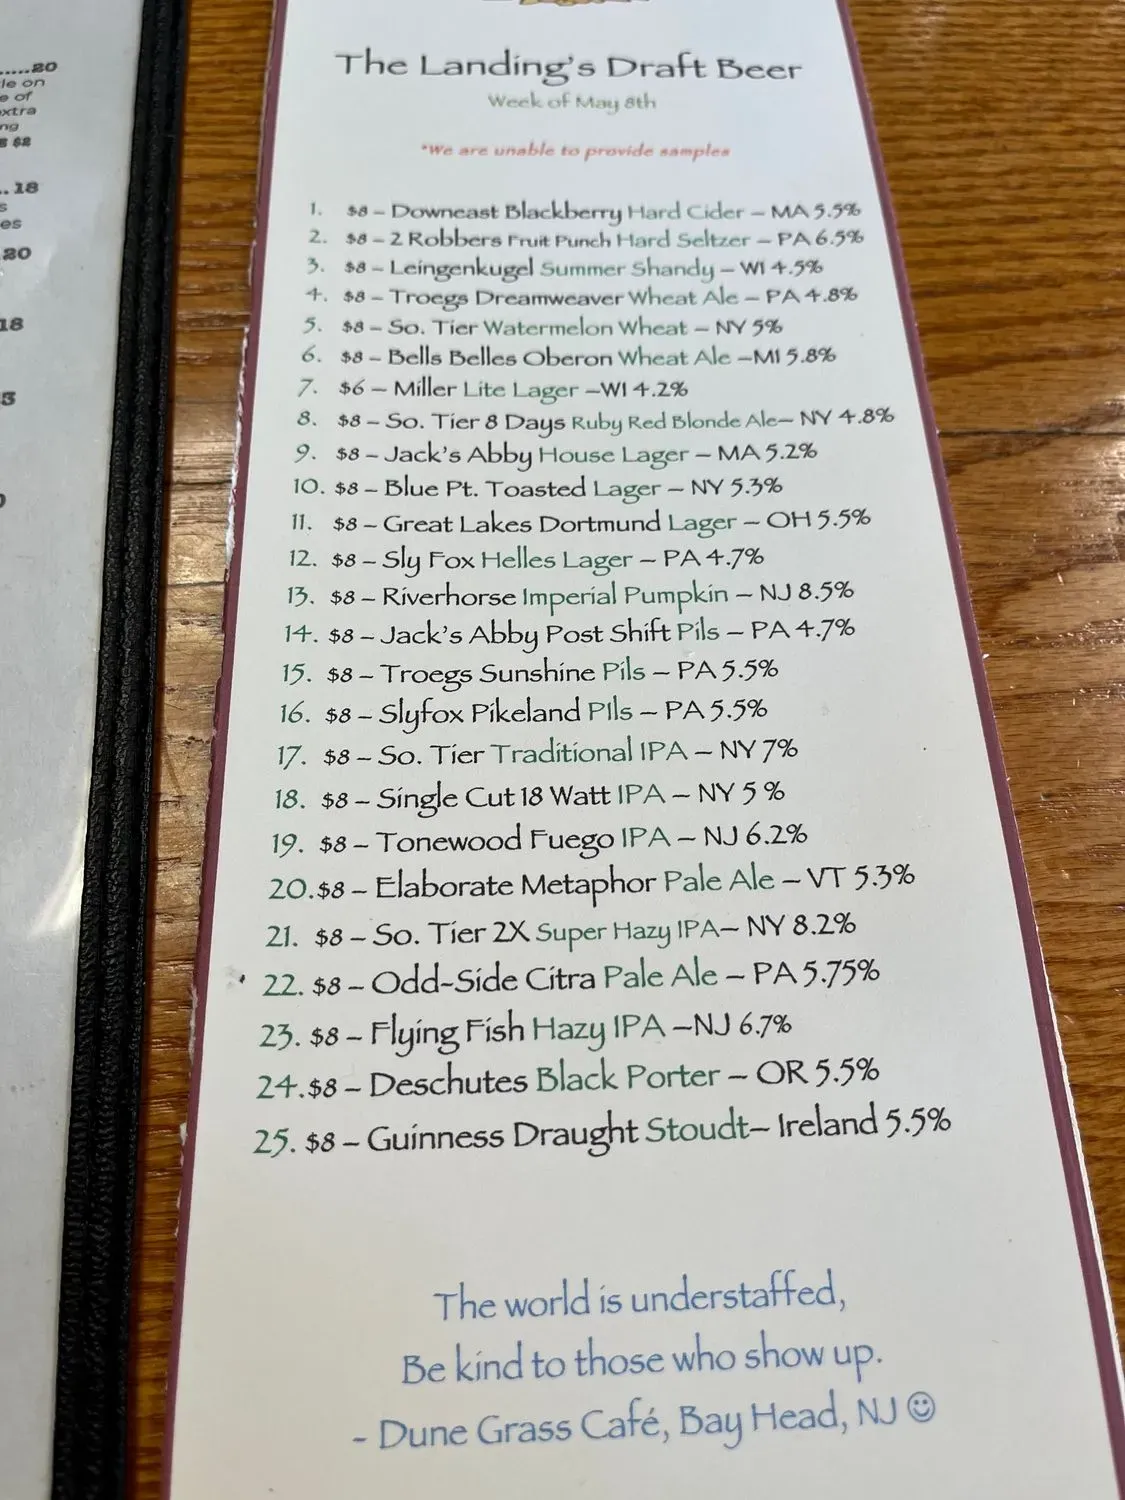 .....20
le on
e of
extra
ng
s $2
.. 18
s
es
20
18
3
The Landing's Draft Beer
Week of May 8th
*We are unable to provide samples
1. $8 – Downeast Blackberry Hard Cider – MA 5.5%
2. $8 – 2 Robbers Fruit Punch Hard Seltzer – PA 6.5%
3. $8 – Leingenkugel Summer Shandy – WI 4.5%
4. $8 – Troegs Dreamweaver Wheat Ale – PA 4.8%
5. $8 – So. Tier Watermelon Wheat – NY 5%
6. $8 – Bells Belles Oberon Wheat Ale –MI 5.8%
7. $6 – Miller Lite Lager –WI 4.2%
8. $8 – So. Tier 8 Days Ruby Red Blonde Ale– NY 4.8%
9. $8 – Jack's Abby House Lager – MA 5.2%
10. $8 – Blue Pt. Toasted Lager – NY 5.3%
11. $8 – Great Lakes Dortmund Lager – OH 5.5%
12. $8 – Sly Fox Helles Lager – PA 4.7%
13. $8 – Riverhorse Imperial Pumpkin – NJ 8.5%
14. $8 – Jack's Abby Post Shift Pils – PA 4.7%
15. $8 – Troegs Sunshine Pils – PA 5.5%
16. $8 – Slyfox Pikeland PIls – PA 5.5%
17. $8 – So. Tier Traditional IPA – NY 7%
18. $8 – Single Cut 18 Watt IPA – NY 5 %
19. $8 – Tonewood Fuego IPA – NJ 6.2%
20.$8 – Elaborate Metaphor Pale Ale – VT 5.3%
21. $8 – So. Tier 2X Super Hazy IPA– NY 8.2%
22. $8 – Odd-Side Citra Pale Ale – PA 5.75%
23. $8 – Flying Fish Hazy IPA –NJ 6.7%
24.$8 – Deschutes Black Porter – OR 5.5%
25. $8 – Guinness Draught Stoudt– Ireland 5.5%
The world is understaffed,
Be kind to those who show up.
- Dune Grass Café, Bay Head, NJ ☺